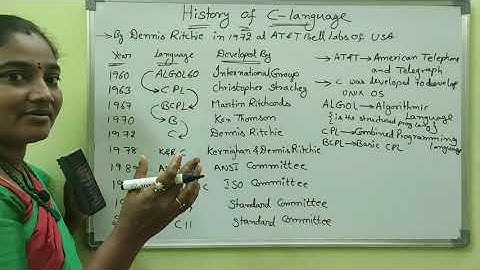 History of C-language
→ By Dennis Ritchie in 1972 at AT&T Bell Labs of USA
Year Language Developed By
1960 ALGOL60 International Group
1963 CPL Christopher Strachey
1967 BCPL Martin Richards
1970 B Ken Tomson
1972 C Dennis Ritchie
1978 K&R C Kernighan & Dennis Ritchie
ANSI Committee
C ISO Committee
Standard Committee
C11 Standard Committee
→ AT&T → American Telephone
and Telegraph
→ C was developed to develop
UNIX OS
ALGOL → Algorithmic
Language
{is the structured prog. lang}
CPL → Combined Programming
Language
BCPL → Basic CPL